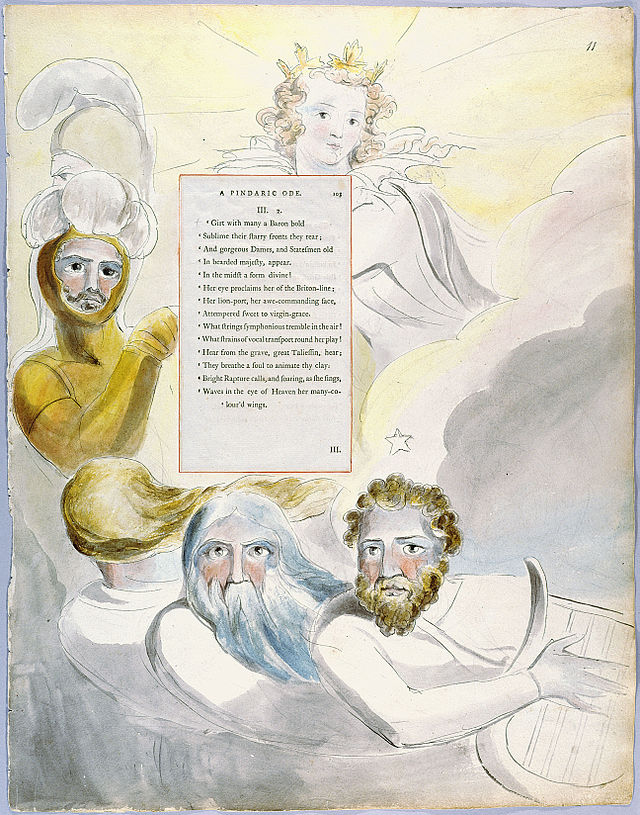 11
A PINDARIC ODE. 103
III. 2.
‘ Girt with many a Baron bold
‘ Sublime their ſtarry fronts they rear;
‘ And gorgeous Dames, and Stateſmen old
‘ In bearded majeſty, appear.
‘ In the midſt a form divine!
‘ Her eye proclaims her of the Briton-line;
‘ Her lion-port, her awe-commanding face,
‘ Attemper'd ſweet to virgin-grace.
‘ What ſtrings ſymphonious tremble in the air!
‘ What ſtrains of vocal tranſport round her play!
‘ Hear from the grave, great Talieſſin, hear;
‘ They breathe a ſoul to animate thy clay.
‘ Bright Rapture calls, and ſoaring, as ſhe ſings,
‘ Waves in the eye of Heaven her many-co-
‘ lour'd wings.
III.